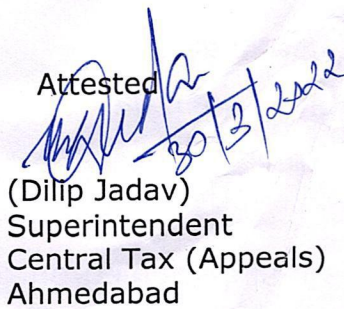 Attested
30/3/2022
(Dilip Jadav)
Superintendent
Central Tax (Appeals)
Ahmedabad